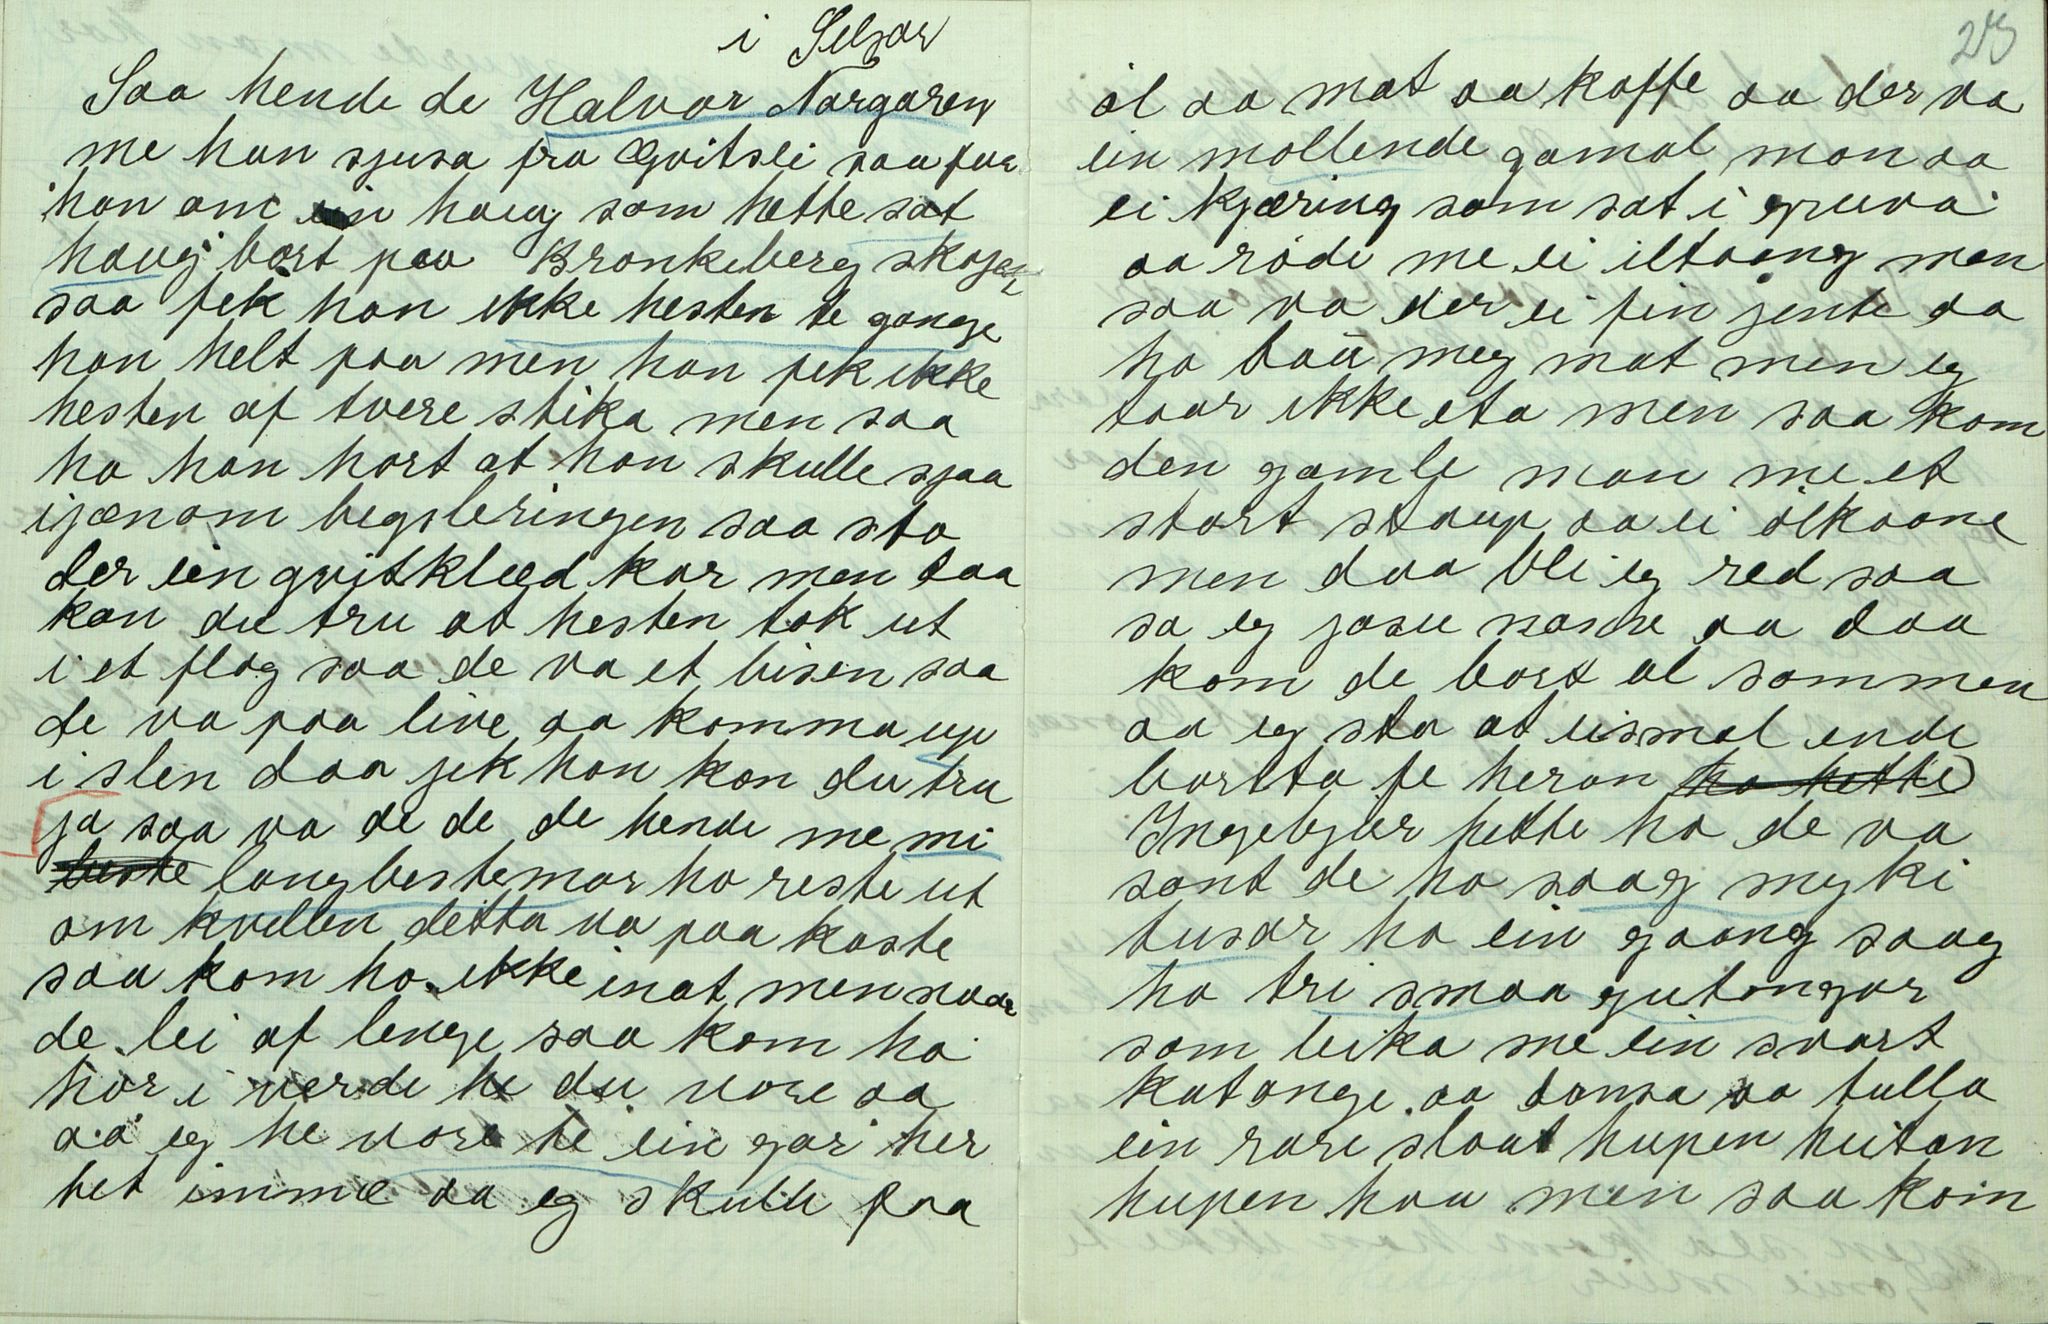 i Seljor
Saa hende de Halvor Norgaren
me han sjusa fra Qvitsei saa for
han om ein haug som hette sat
haug bort paa Bronkeberg skogen
saa fek han ikke hesten te gange
han helt paa men han fek ikke
hesten af tvere stika men saa
ha han hort at han skulle sjaa
ijænom begsleringen saa sto
der ein qvitklæd kar men daa
kan du tru at hesten tok ut
i et flog saa de va et bisen saa
de va paa live aa komma up
i slen daa jek han kan du tru
ja saa va de de de hende me mi
beste langbestemor ho reste ut
om kvellen detta va paa kaste
saa kom ho ikke inat men naar
de lei af lenge saa kom ho
hor i verde he du vore aa
aa eg he vore te ein gar her
bet imme aa eg skulle faa
28
øl aa mat aa kaffe aa der va
ein mollende gamal man aa
ei kjæring som sat i gruva
aa rode me ei iltaang men
saa va der ei fin jente aa
ho baa meg mat men eg
toar ikke eta men saa kom
den gamle man me et
stort staup aa ei ølkaane
men daa blei eg red saa
sa eg jasu namn aa daa
kom de bort al sammen
aa eg sto at eismal ende
bortta fe heran ho hette
Ingebjør hette ho de va
sant de ho saag myki
tusar ho ein gaang saag
ho tri smaa gutongar
som leika me ein svart
katonge aa dansa aa tulla
ein rare slaat hupen heitan
hupen haa men saa kom